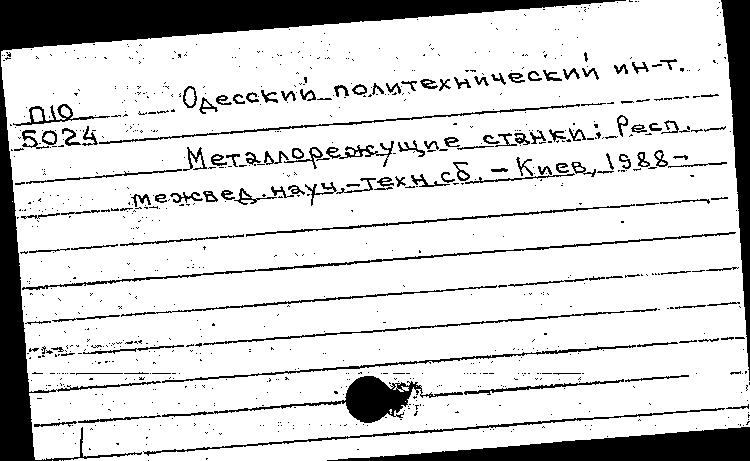 П10 Одесский политехнический ин-т.
5024
Металлорежущие станки: Респ.
межвед. науч.-техн. сб. – Киев, 1988–